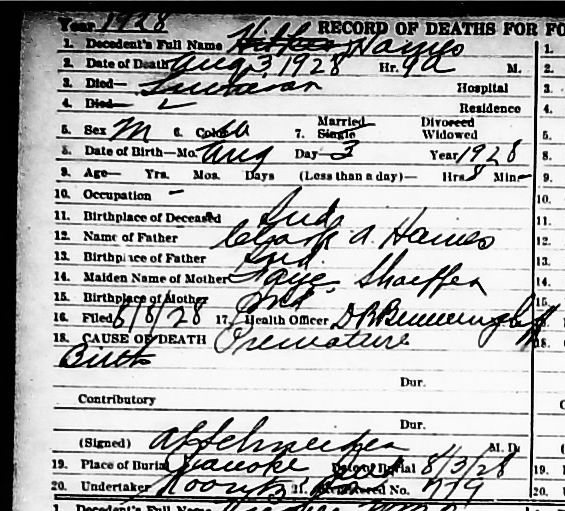 Year 1928 RECORD OF DEATHS FOR FO
1. Decedent's Full Name Haines 1.
2. Date of Death Aug 3, 1928 Hr. 9a M. 2.
3. Died— Hospital 3.
4. Died— Residence 4.
5. Sex M 6. Color W 7. Married Single Divorced Widowed 5.
8. Date of Birth—Mo. Aug Day 3 Year 1928 8.
9. Age— Yrs. Mos. Days (Less than a day)— Hrs 8 Min— 9.
10. Occupation — 10.
11. Birthplace of Deceased Ind. 11.
12. Name of Father Clark A. Haines 12.
13. Birthplace of Father Ind. 13.
14. Maiden Name of Mother Faye Shaffer 14.
15. Birthplace of Mother Ind. 15.
16. Filed 8/8/28 17. Health Officer
18. CAUSE OF DEATH Premature 18.
Birth
Dur.
Contributory
Dur.
(Signed) M. D.
19. Place of Burial Roanoke Ind Date of Burial 8/3/28 19.
20. Undertaker Koontz 21. Registered No. 779 20.
1. Decedent's Full Name 1.